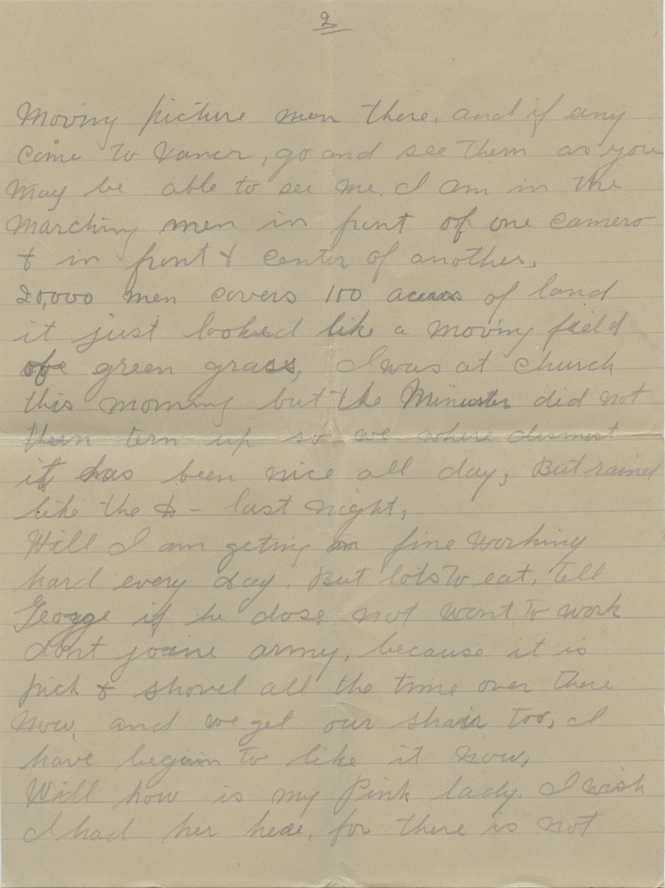 2
Moving picture men there, and if any
come to Vancr, go and see them as you
may be able to see me. I am in the
Marching men in front of one camero
& in front & center of another,
20,000 men covers 100 acers of land
it just looked like a moving field
of green grass, I was at church
this morning but the Minister did not
tern up so we where dismest
it has been nice all day, But rained
like the D - last night,
Will I am geting on fine working
hard every day. But lots to eat, Tell
George if he dose not want to work
dont joine army, because it is
pick & shovel all the time over there
now, and we get our shair too, I
have begain to like it now,
Will how is my Pink lady. I wish
I had her hear, for there is not